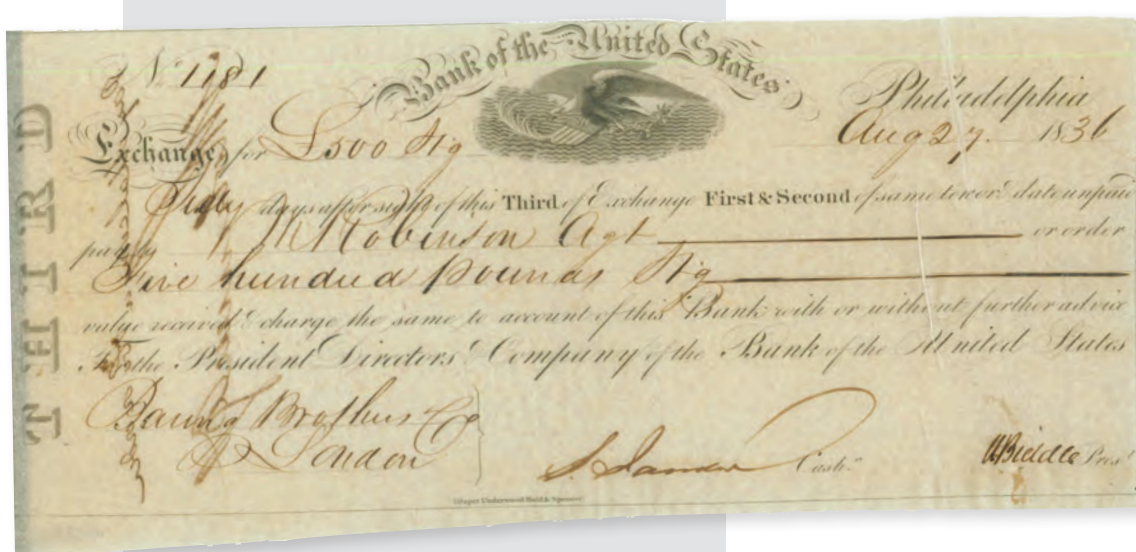 THIRD
Bank of the United States
No. 1181
Philadelphia
Exchange for £500 Stg
Aug 27. 1836
Sixty days after sight of this Third of Exchange First & Second of same tenor & date unpaid
pay to Robinson Agt or order
Five hundred pounds Stg
value received & charge the same to account of this Bank with or without further advice
For the President Directors & Company of the Bank of the United States
Baring Brothers & Co
London
Cashr.
N Biddle Prest
Draper Underwood Bald & Spencer